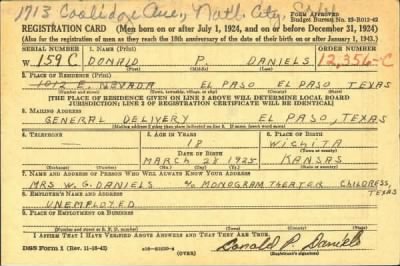 1713 Coolidge Ave, Natl. City,
FORM APPROVED
Budget Bureau No. 33-R012-42
REGISTRATION CARD—(Men born on or after July 1, 1924, and on or before December 31, 1924)
(Also for the registration of men as they reach the 18th anniversary of the date of their birth on or after January 1, 1943.)
SERIAL NUMBER 1. NAME (Print) ORDER NUMBER
W 159 C DONALD P. DANIELS 12,356-C
(First) (Middle) (Last)
2. PLACE OF RESIDENCE (Print)
1012 E. NEVADA EL PASO EL PASO TEXAS
[THE PLACE OF RESIDENCE GIVEN ON LINE 2 ABOVE WILL DETERMINE LOCAL BOARD
JURISDICTION; LINE 2 OF REGISTRATION CERTIFICATE WILL BE IDENTICAL]
3. MAILING ADDRESS
GENERAL DELIVERY EL PASO, TEXAS
4. TELEPHONE 5. AGE IN YEARS 6. PLACE OF BIRTH
— 18 WICHITA
DATE OF BIRTH (Town or county)
MARCH 28 1925 KANSAS
(Exchange) (Number) (Mo.) (Day) (Yr.) (State or country)
7. NAME AND ADDRESS OF PERSON WHO WILL ALWAYS KNOW YOUR ADDRESS
MRS W. G. DANIELS c/o MONOGRAM THEATER CHILDRESS, TEXAS
8. EMPLOYER'S NAME AND ADDRESS
UNEMPLOYED
9. PLACE OF EMPLOYMENT OR BUSINESS
(Number and street or R. F. D. number) (Town) (County) (State)
I AFFIRM THAT I HAVE VERIFIED ABOVE ANSWERS AND THAT THEY ARE TRUE.
DSS Form 1 (Rev. 11-16-42) (OVER) Donald P. Daniels
(Registrant's signature)